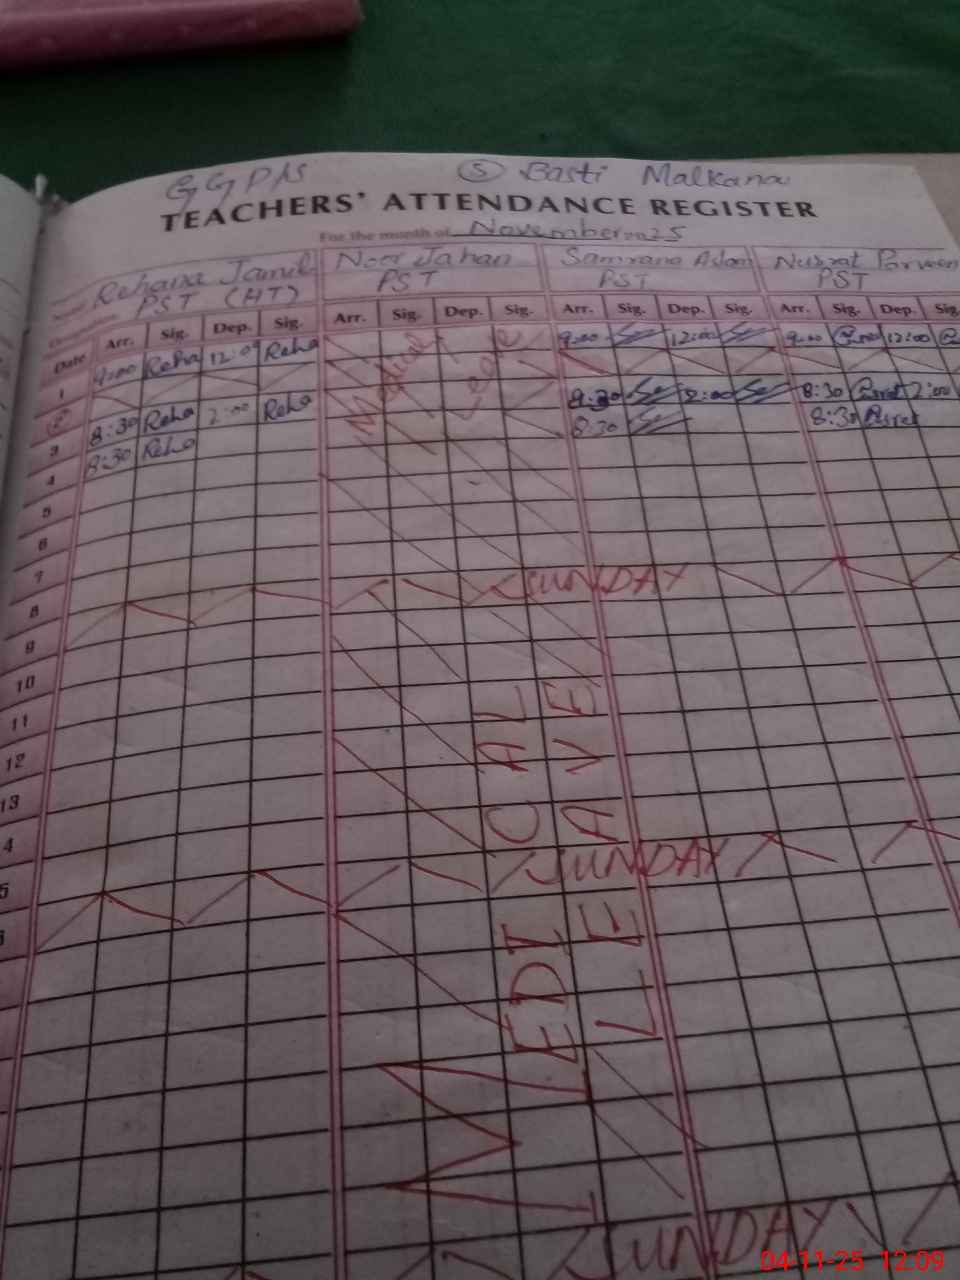 GGPS (S) Basti Malkana
TEACHERS' ATTENDANCE REGISTER
For the month of November 2025
Rehana Jamil Noor Jahan Samrana Aslam Nusrat Parveen
PST (HT) PST PST PST
Date Arr. Sig. Dep. Sig. Arr. Sig. Dep. Sig. Arr. Sig. Dep. Sig. Arr. Sig. Dep. Sig
1 9:00 Reha 12:00 Reha 9:00 12:00 9:00 12:00
2
3 8:30 Reha 2:00 Reha 8:30 2:00 8:30 2:00
4 8:30 Reha 8:30 8:30
Medical Leave
5
6
7
8
SUNDAY
9
10
11
12
13
4
5
SUNDAY
6
MEDICAL
LEAVE
SUNDAY
04-11-25 12:09